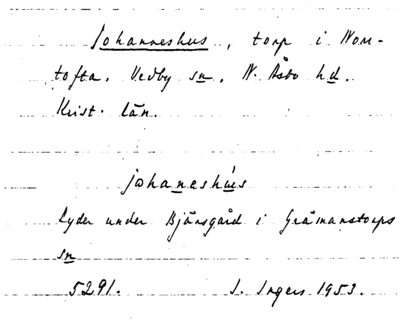 Johanneshus, torp i Nom-
tofta. Vedby sn. N. Åsbo hd.
Krist. län.
johaneshús
lyder under Bjärsgård i Gråmanstorps
sn
5291. I. Ingers 1953.